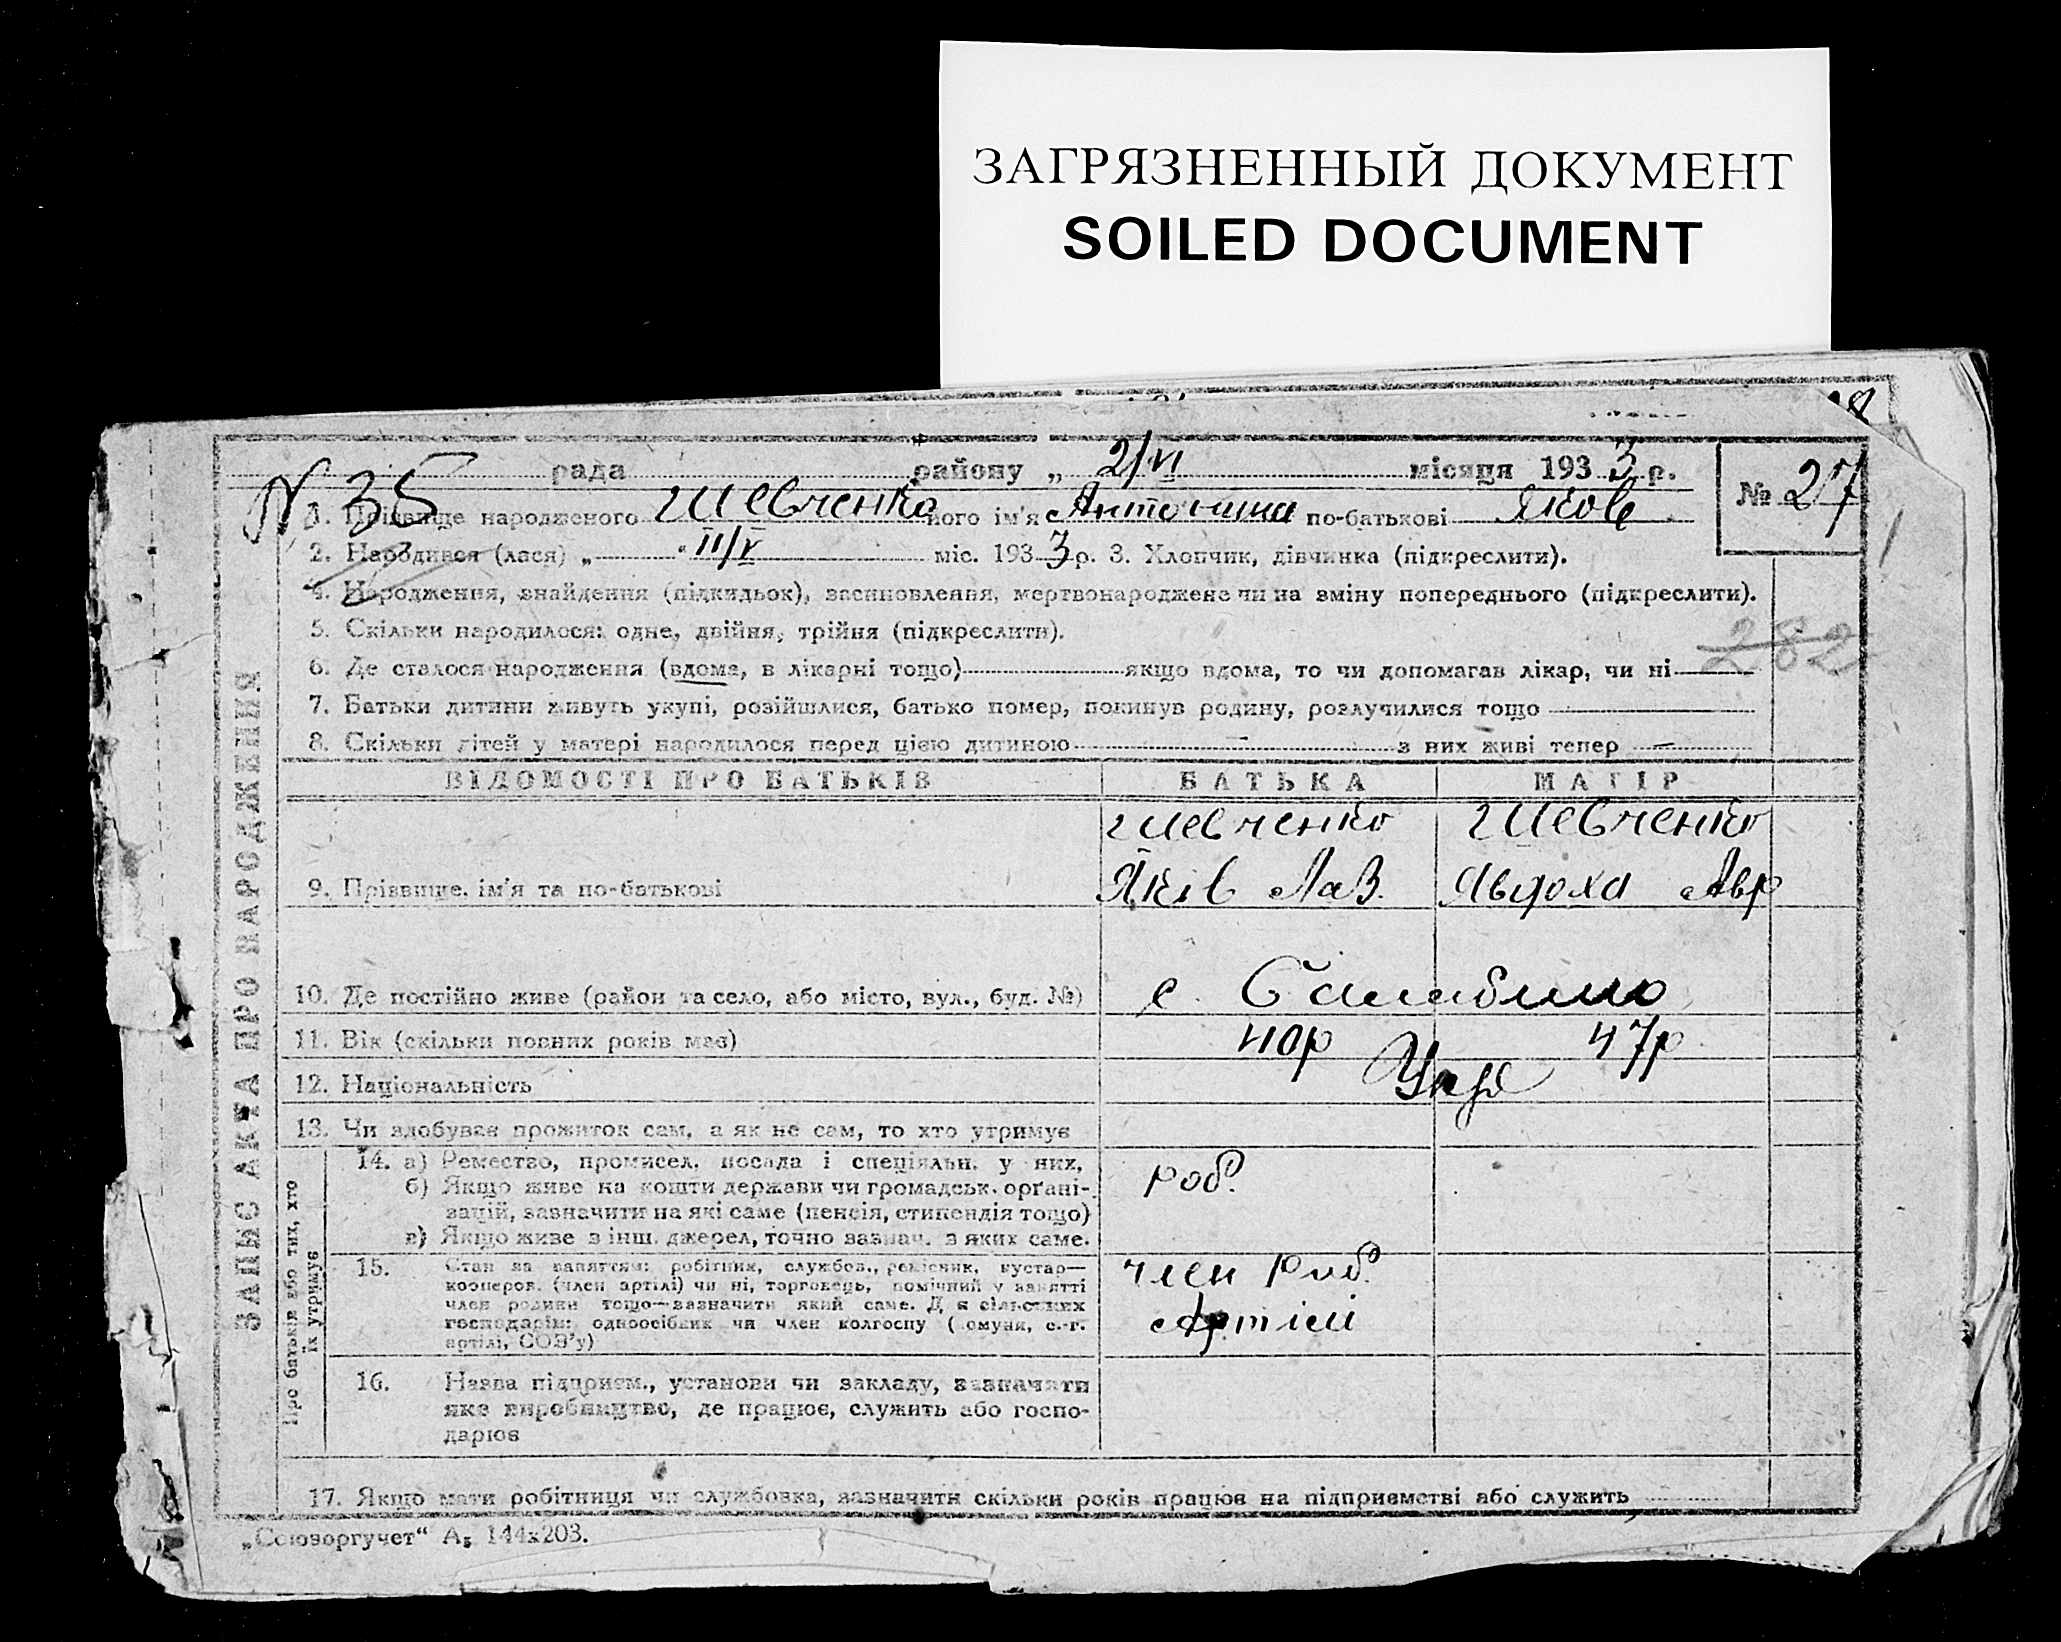 ЗАГРЯЗНЕННЫЙ ДОКУМЕНТ
SOILED DOCUMENT
рада району „ 2/VI місяця 1933 р.
№ 27
N 35
1. Прізвище народженого Шевченко його ім'я Антонина по-батькові Яков
2. Народився (лася) „ " II/V міс. 1933 р. 3. Хлопчик, дівчинка (підкреслити).
4. Народження, знайдення (підкидьок), засиновлення, мертвонароджене чи на зміну попереднього (підкреслити).
5. Скільки народилося: одне, двійня, трійня (підкреслити).
282
6. Де сталося народження (вдома, в лікарні тощо) якщо вдома, то чи допомагав лікар, чи ні
7. Батьки дитини живуть укупі, розійшлися, батько помер, покинув родину, розлучилися тощо
8. Скільки дітей у матері народилося перед цією дитиною — з них живі тепер —
ЗАПИС АКТА ПРО НАРОДЖЕННЯ
ВІДОМОСТІ ПРО БАТЬКІВ БАТЬКА МАТІР
Шевченко Шевченко
9. Прізвище, ім'я та по-батькові Яків Лав. Явдоха Авр
10. Де постійно живе (район та село, або місто, вул., буд. №) с.
11. Вік (скільки повних років має) 40р 47р
12. Національність Укр
13. Чи здобуває прожиток сам, а як не сам, то хто утримує
Про батьків або тих, хто їх утримує
14. а) Ремество, промисел, посада і спеціяльн. у них, роб.
б) Якщо живе на кошти держави чи громадськ. орґані-
зацій, зазначити на які саме (пенсія, стипендія тощо)
в) Якщо живе з інш. джерел, точно зазнач. з яких саме.
15. Стан за заняттям: робітник, службов., ремісник, кустар— член роб.
кооперов. (член артілі) чи ні, торговець, помічний у занятті
член родини тощо—зазначити який саме. Для сільських Артілі
господарів: одноосібник чи член колгоспу (комуни, с.-г.
артілі, СОЗ'у)
16. Назва підприєм., установи чи закладу, зазначити
яке виробництво, де працює, служить або госпо-
дарює
17. Якщо мати робітниця чи службовка, зазначити скільки років працює на підприємстві або служить
„Союзоргучет“ А5 144x203.